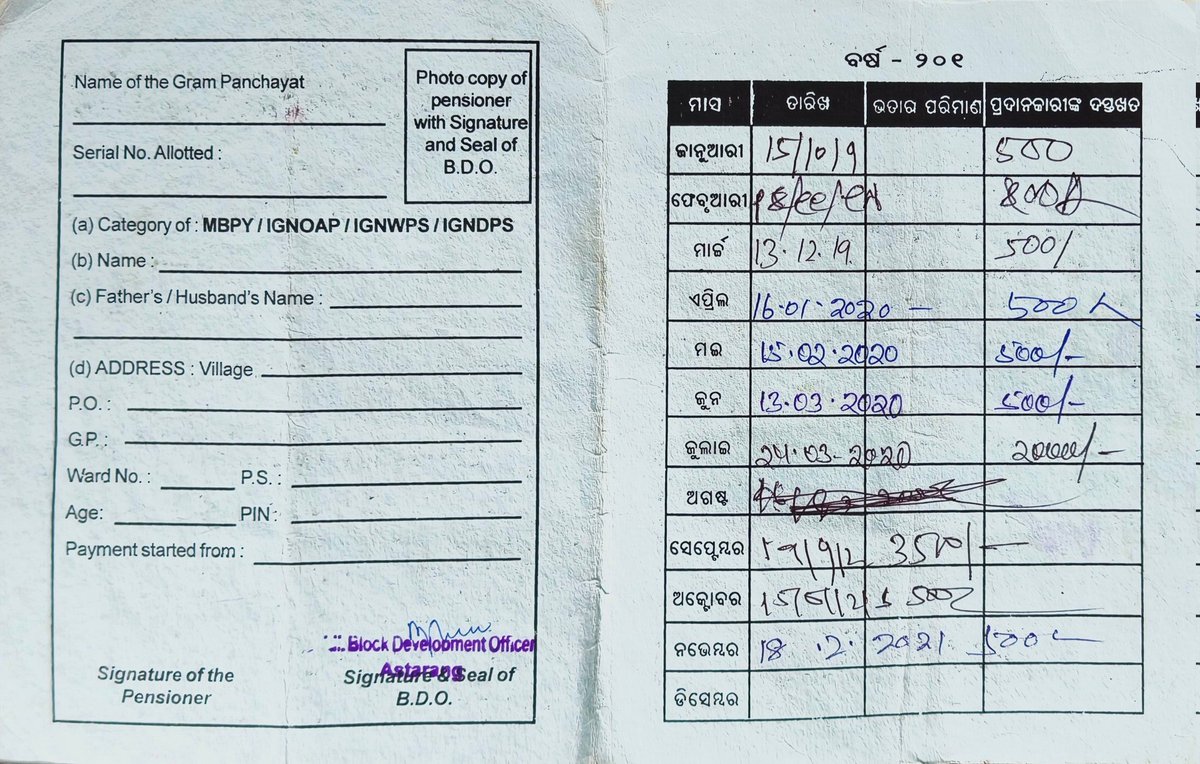 Name of the Gram Panchayat
Photo copy of
pensioner
with Signature
and Seal of
B.D.O.
Serial No. Allotted :
(a) Category of : MBPY / IGNOAP / IGNWPS / IGNDPS
(b) Name :
(c) Father's / Husband's Name :
(d) ADDRESS : Village
P.O. :
G.P. :
Ward No. : P.S. :
Age: PIN :
Payment started from :
Block Development Officer
Astarang
Signature of the
Pensioner
Signature & Seal of
B.D.O.
ବର୍ଷ - ୨୦୧
ମାସ ତାରିଖ ଭତାର ପରିମାଣ ପ୍ରଦାନକାରୀଙ୍କ ଦସ୍ତଖତ
ଜାନୁଆରୀ 15/10/9 500
ଫେବୃଆରୀ
ମାର୍ଚ୍ଚ 13.12.19 500/
ଏପ୍ରିଲ 16.01.2020 – 500
ମଇ 15.02.2020 500/-
ଜୁନ 13.03.2020 500/-
ଜୁଲାଇ 24.03-2020 2000/-
ଅଗଷ୍ଟ
ସେପ୍ଟେମ୍ବର 3500/-
ଅକ୍ଟୋବର 500
ନଭେମ୍ବର 18.2.2021 500
ଡିସେମ୍ବର